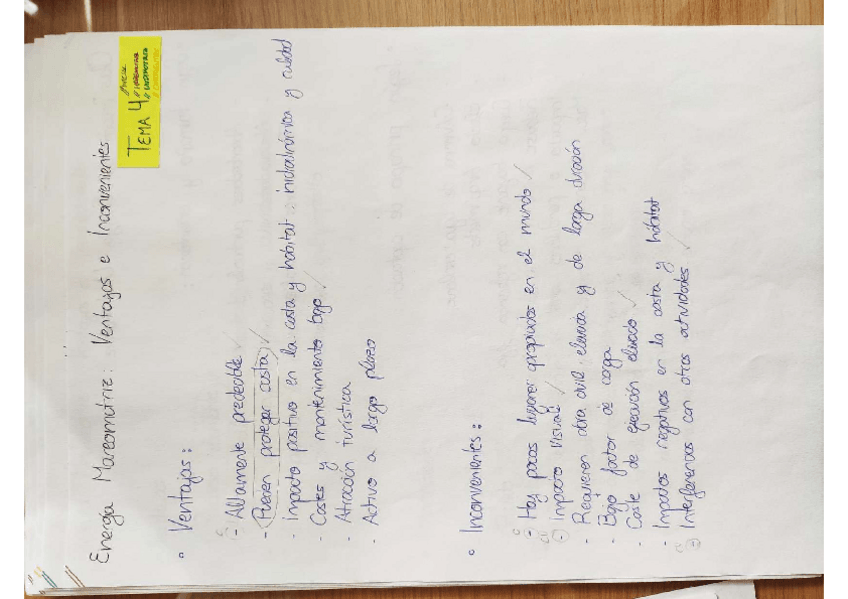 Energía Mareomotriz: Ventajas e Inconvenientes
TEMA 4
• Ventajas:
- Altamente predecible ✓
- Pueden proteger costa ✓
- Impacto positivo en la costa y hábitat: hidrodinámica y calidad
- Costes y mantenimiento bajo ✓
- Atracción turística
- Activo a largo plazo
• Inconvenientes:
- Hay pocos lugares apropiados en el mundo ✓
- Impacto visual ✓
- Requieren obra civil elevada y de larga duración
- Bajo factor de carga
- Coste de ejecución elevado ✓
- Impactos negativos en la costa y hábitat
- Interferencias con otras actividades ✓